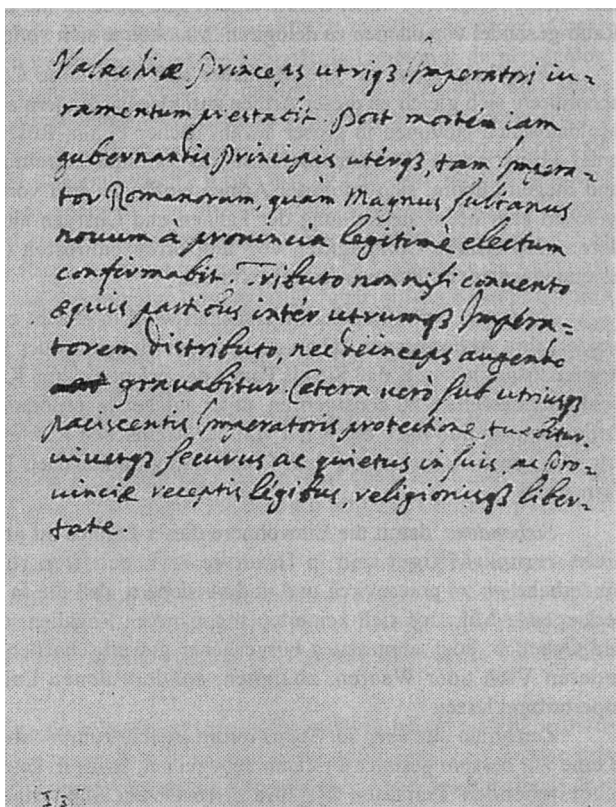 Valachiæ Princeps utriq3 Imperatori iu-
ramentum præstabit. Post mortém iam
gubernantis Principis utérq3, tam Impera=
tor Romanorum, quàm Magnus Sultanus
novum à provincia legitimè electum
confirmabit. Tributo non nisi convento
æquis partibus intér utrumq3 Impera=
torem distributo, nec deinceps augendo
gravabitur. Cætera verò sub utriusq3
paciscentis Imperatoris protectione tuebitur.
vivetq3 securus ac quietus in suis, ac Pro-
vinciæ receptis légibus, religionisq3 liber-
tate.